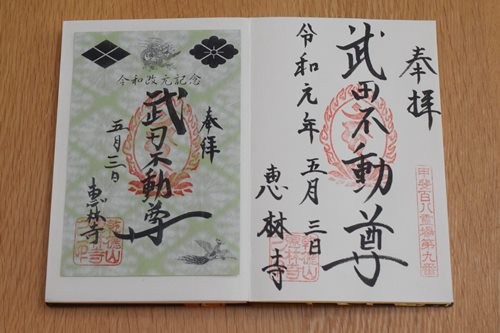 奉拝
武田不動尊
令和元年五月三日
恵林寺
甲斐百八霊場第九番
令和改元記念
奉拝
武田不動尊
五月三日
恵林寺